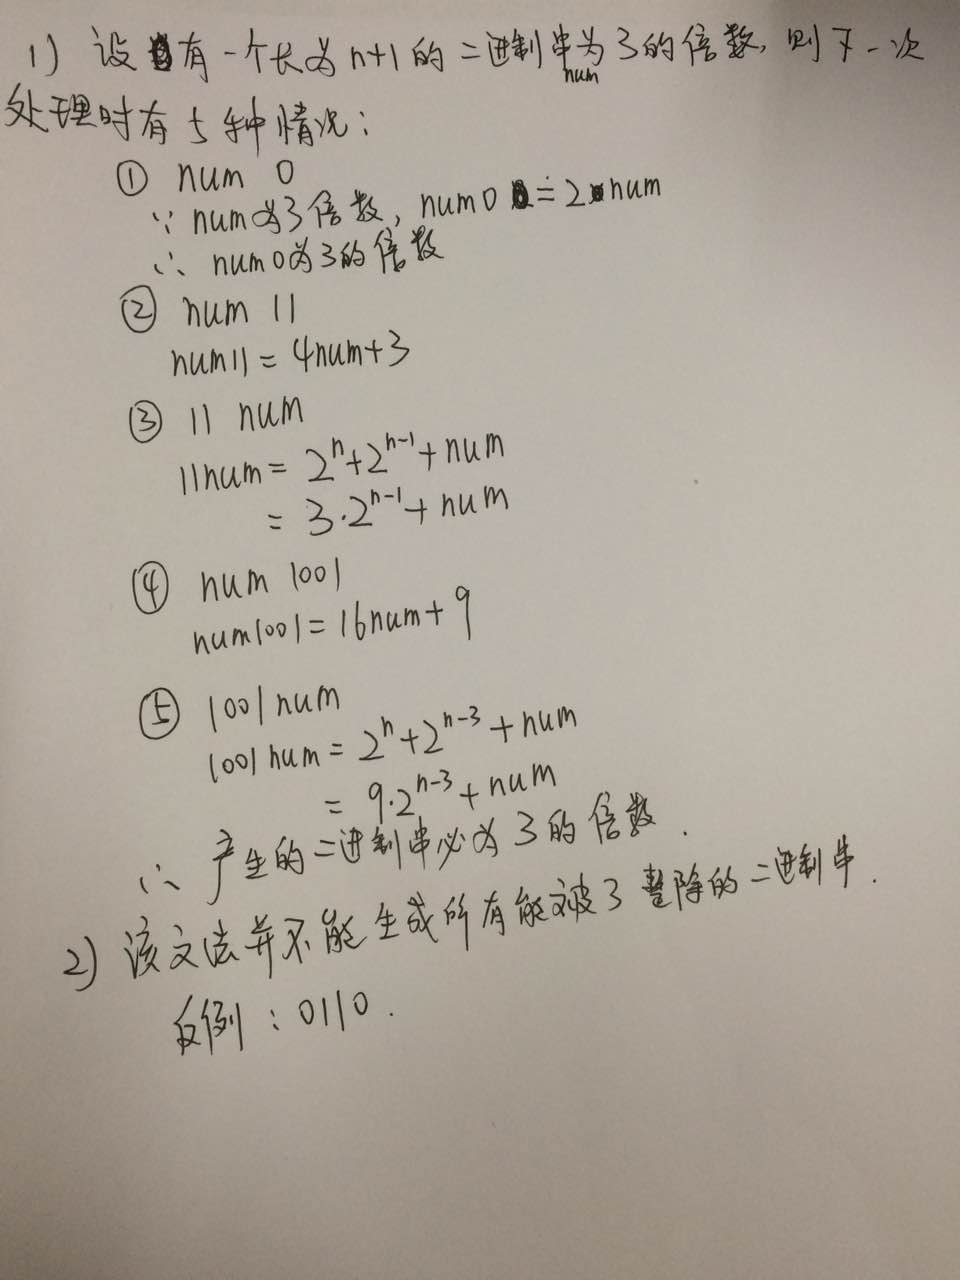 1) 设有一个长为n+1的二进制串num为3的倍数,则下一次
处理时有5种情况:
① num 0
∵ num为3倍数, num0 = 2·num
∴ num0为3的倍数
② num 11
num11 = 4num+3
③ 11 num
11num = 2^n+2^{n-1}+num
= 3·2^{n-1}+num
④ num 1001
num1001 = 16num+9
⑤ 1001num
1001num = 2^n+2^{n-3}+num
= 9·2^{n-3}+num
∴ 产生的二进制串必为3的倍数.
2) 该文法并不能生成所有能被3整除的二进制串.
反例: 0110.